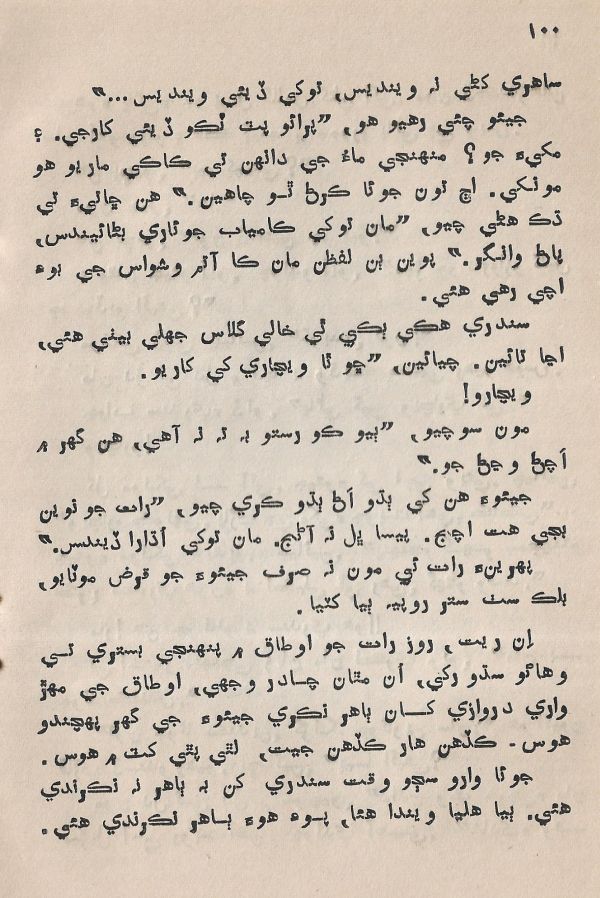 ١٠٠
ساهري کڻي نہ ويندیس، توکي ڏيئي وينديس..."
جيئو چئي رهيو هو، "پرائو پٽ ٺڪو ڏيئي ڪارجي. ۽
مکيءَ جو؟ منهنجي ماءُ جي دانهن تي ڪاڪي ماريو هو
مونکي. اڄ تون جوئا کرڻ ٿو چاهين." هن ڇاتيءَ تي
ڌڪ هڻي چيو، "مان توکي ڪامياب جوئاري بڻائيندس،
پاڻ وانگر." پوين ٻن لفظن مان ڪا آتم وشواس جي بوءِ
اچي رهي هئي.
سندري هڪي ٻڪي ٿي خالي گلاس جهلي بيٺي هئي،
اڃا تائين. چيائين، "ڇو ٿا ويچاري کي کاريو.
ويچارو!
مون سوچيو، "ٻيو ڪو رستو بہ تہ نہ آهي، هن گهر ۾
اَچڻ وڃڻ جو."
جيئوءَ هن کي ٻڌو اَڻ ٻڌو ڪري چيو، "رات جو نوين
بجي هت اچج. پيسا ڀل نہ آڻج. مان توکي اُڌارا ڏيندس."
پهرينءَ رات ئي مون نہ صرف جيئوءَ جو قرض موٽايو،
بلڪ سٺ ستر روپيہ ٻيا کٽيا.
اِن ريت، روز رات جو اوطاق ۾ پنهنجي بستري تي
وهاڻو سڌو رکي، اُن مٿان چادر وجهي، اوطاق جي مهڙ
واري دروازي کان ٻاهر نڪري جيئوءَ جي گهر پهچندو
هوس - ڪڏهن هار ڪڏهن جيت، لٿي پٿي کٽ ۾ هوس.
جوئا وارو سڄو وقت سندري کن بہ ٻاهر نہ نڪرندي
هئي. ٻيا هليا ويندا هئا، پوءِ هوءَ ٻاهر نڪرندي هئي.